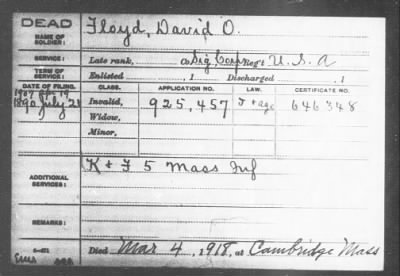 DEAD
NAME OF SOLDIER: Floyd, David O.
SERVICE: Late rank, Co Sig Corps Reg't U.S.A
TERM OF SERVICE: Enlisted , 1 Discharged , 1
DATE OF FILING. CLASS. APPLICATION NO. LAW. CERTIFICATE NO.
1907 Apr 19
1890 July 21 Invalid, 925,457 J + age 646348
Widow,
Minor,
ADDITIONAL SERVICES: K & F 5 Mass Inf
REMARKS:
Died Mar 4, 1918, at Cambridge Mass